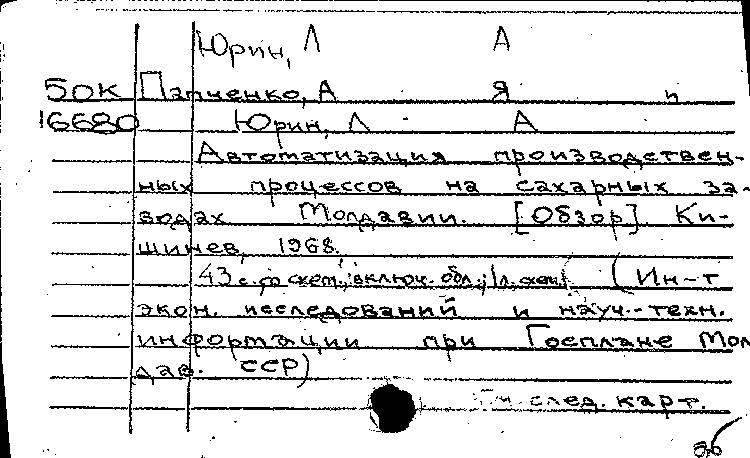 Юрин, Л А
50К Папченко, А Я и
16680 Юрин, Л. А
Автоматизация производствен-
ных процессов на сахарных за-
водах Молдавии. [Обзор]. Ки-
шинев, 1968.
43 с. со схем., включ. обл.; 1 л. схем. (Ин-т
экон. исследований и науч.-техн.
информации при Госплане Мол
дав. ССР)
См. след. карт.